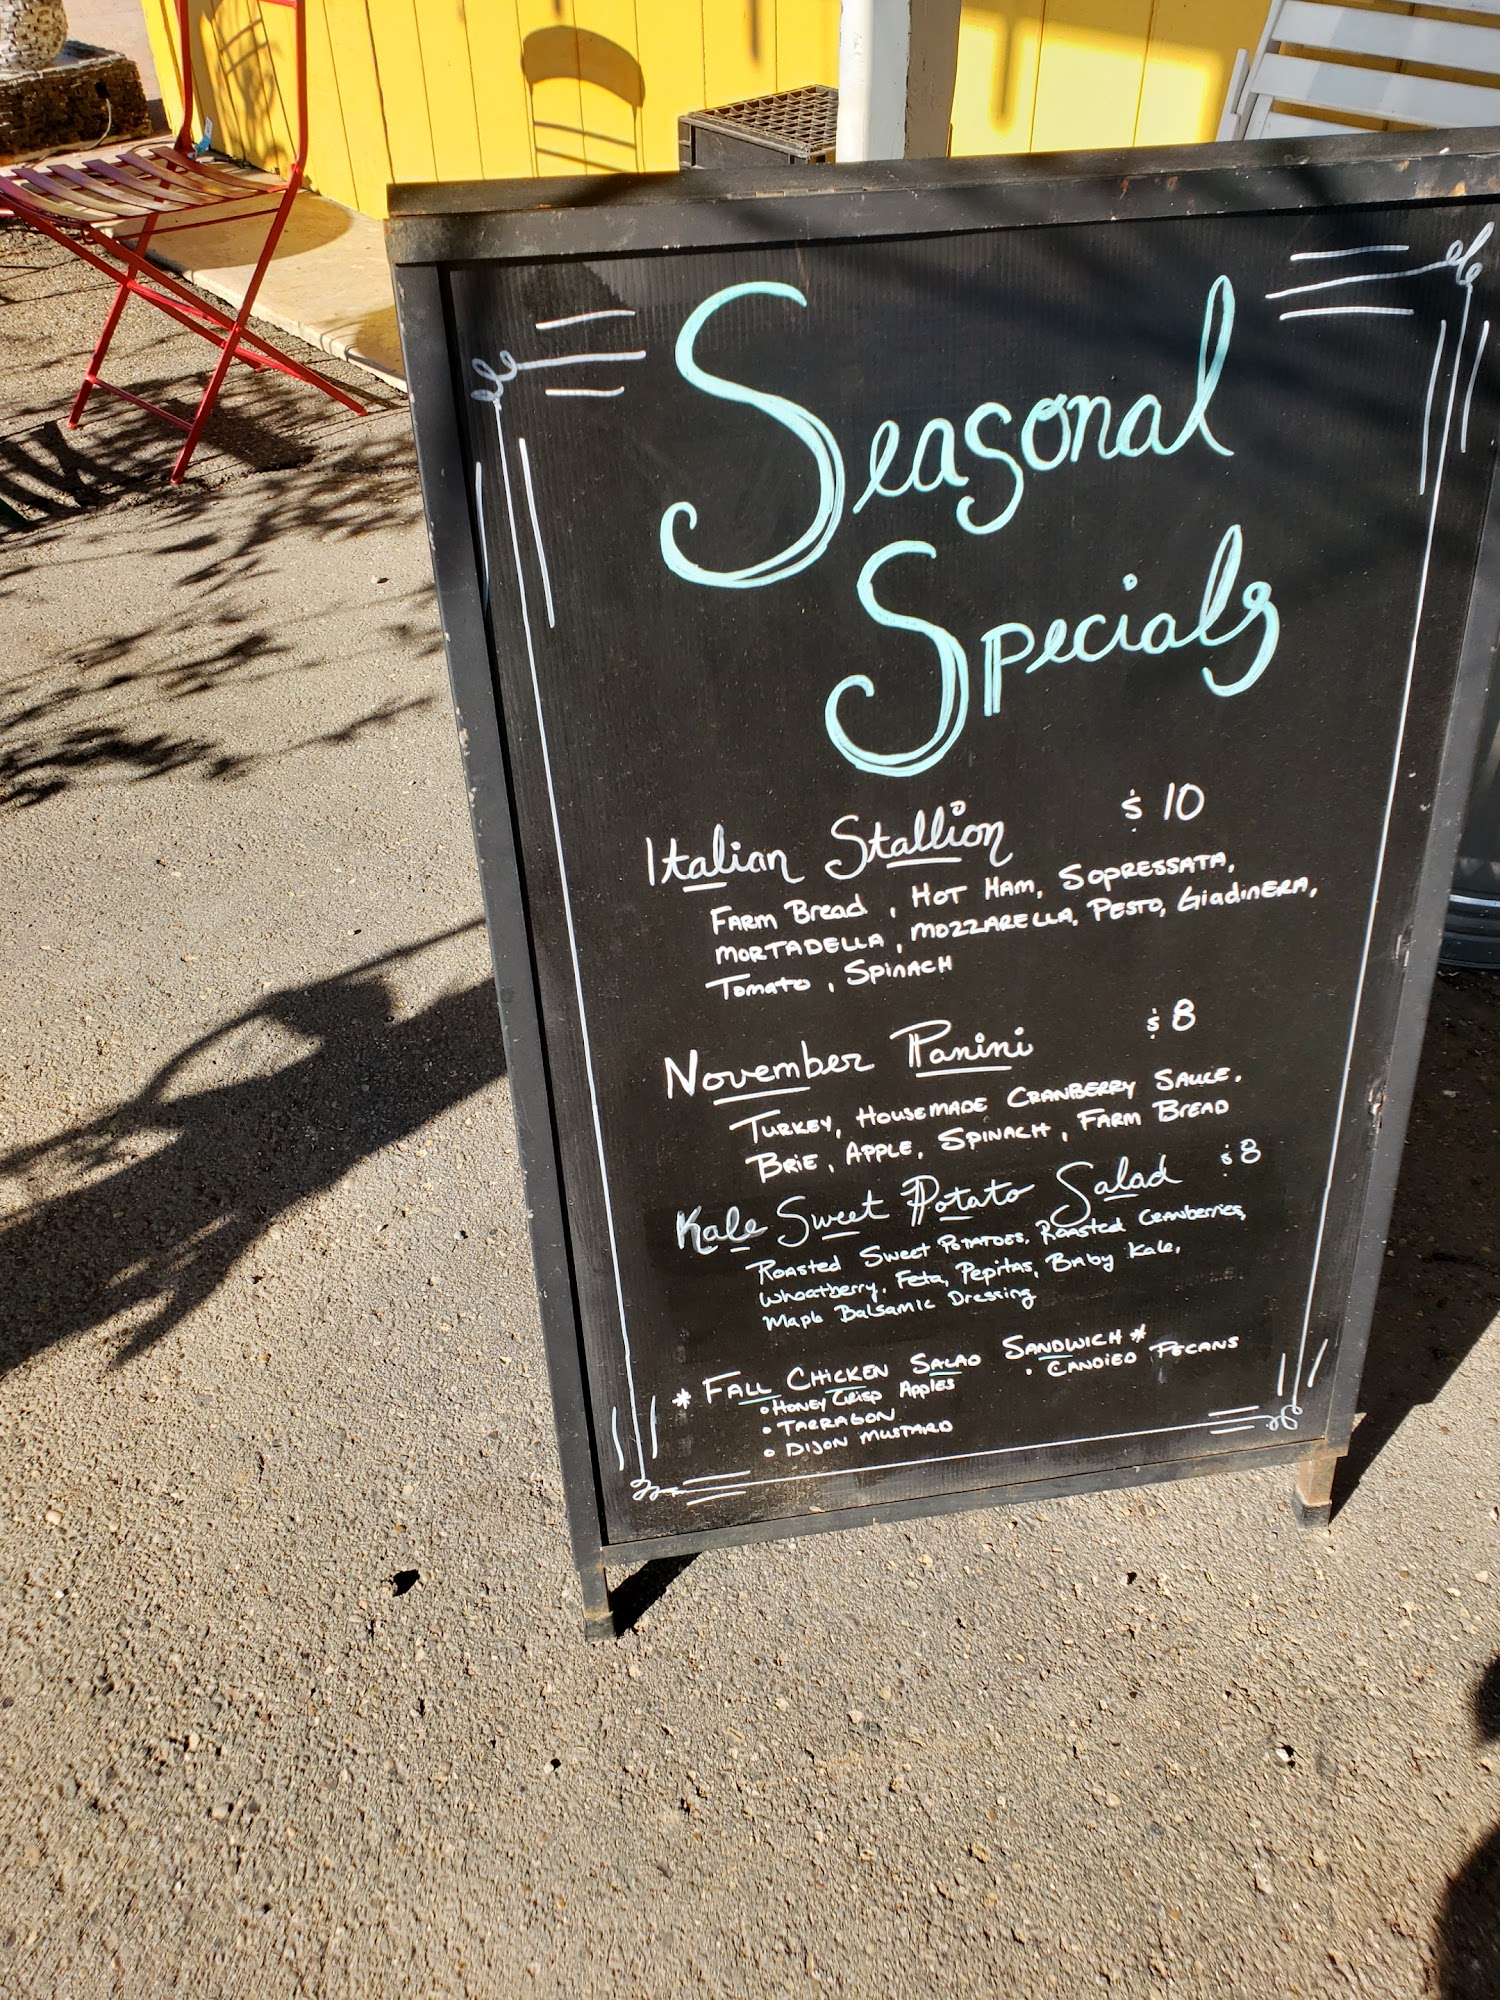 Seasonal
Specials
Italian Stallion $ 10
FARM Bread, HOT HAM, SOPRESSATA,
MORTADELLA, MOZZARELLA, PESTO, GiadinERA,
Tomato, SPINACH
November Panini $ 8
TURKEY, HOUSEMADE CRANBERRY SAUCE,
BRIE, APPLE, SPINACH, FARM BREAD
Kale Sweet Potato Salad $ 8
Roasted Sweet Potatoes, Roasted Cranberries,
Wheatberry, Feta, Pepitas, Baby Kale,
Maple Balsamic Dressing
* FALL CHICKEN SALAD SANDWICH *
• HONEY CRISP APPLES • CANDIED PECANS
• TARRAGON
• DIJON MUSTARD